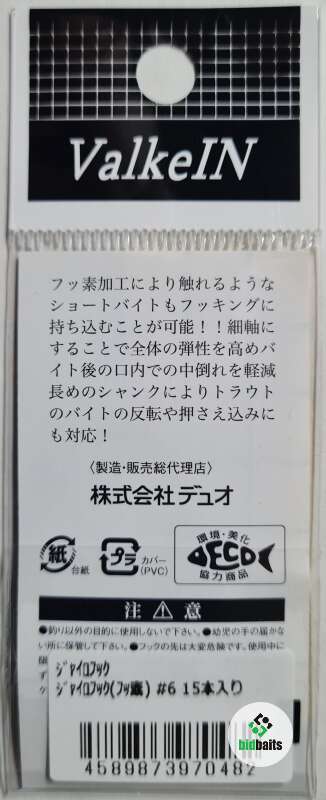 ValkeIN
フッ素加工により触れるような
ショートバイトもフッキングに
持ち込むことが可能！！細軸に
することで全体の弾性を高めバ
イト後の口内での中倒れを軽減
長めのシャンクによりトラウト
のバイトの反転や押さえ込みに
も対応！
〈製造・販売総代理店〉
株式会社デュオ
紙
台紙
プラ
カバー
(PVC)
環境・美化
ECO
協力商品
注 意
●釣り以外の目的に使用しないで下さい。●幼児の手の届かな
い所に保管して下さい。●フックの先は大変危険です。使用中に
ジャイロフック
ジャイロフック(フッ素) #6 15本入り
4589873970482
bidbaits